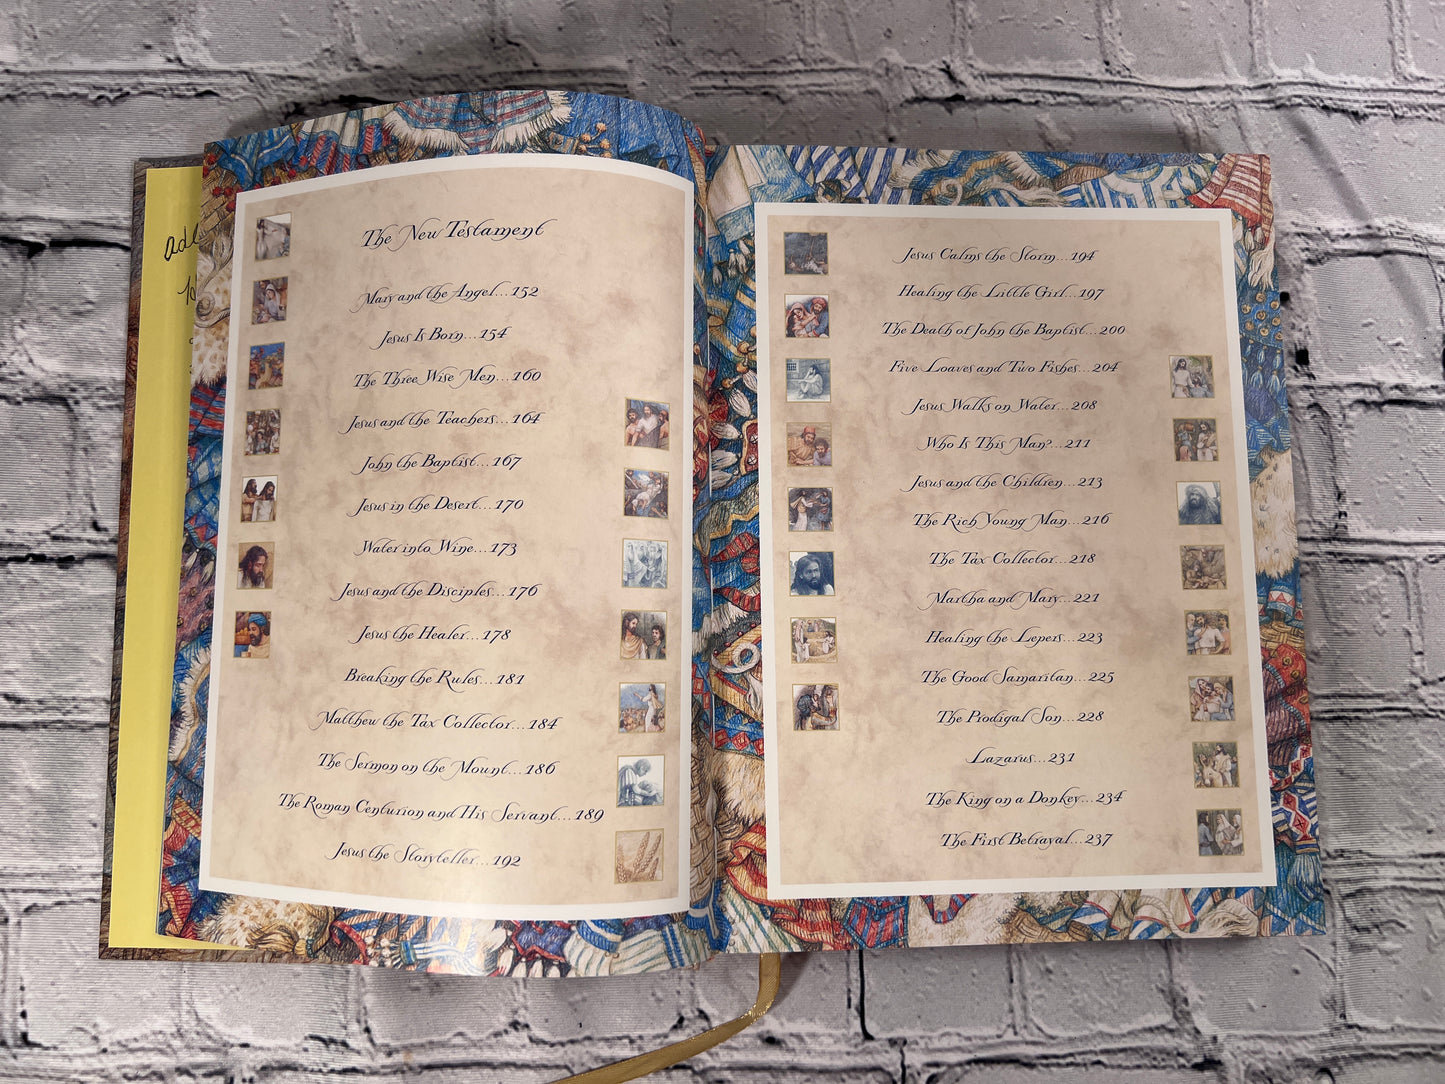 The New Testament
Mary and the Angel...152
Jesus Is Born...154
The Three Wise Men...160
Jesus and the Teachers...164
John the Baptist...167
Jesus in the Desert...170
Water into Wine...173
Jesus and the Disciples...176
Jesus the Healer...178
Breaking the Rules...181
Matthew the Tax Collector...184
The Sermon on the Mount...186
The Roman Centurion and His Servant...189
Jesus the Storyteller...192
Jesus Calms the Storm...194
Healing the Little Girl...197
The Death of John the Baptist...200
Five Loaves and Two Fishes...204
Jesus Walks on Water...208
Who Is This Man?...211
Jesus and the Children...213
The Rich Young Man...216
The Tax Collector...218
Martha and Mary...221
Healing the Lepers...223
The Good Samaritan...225
The Prodigal Son...228
Lazarus...231
The King on a Donkey...234
The First Betrayal...237